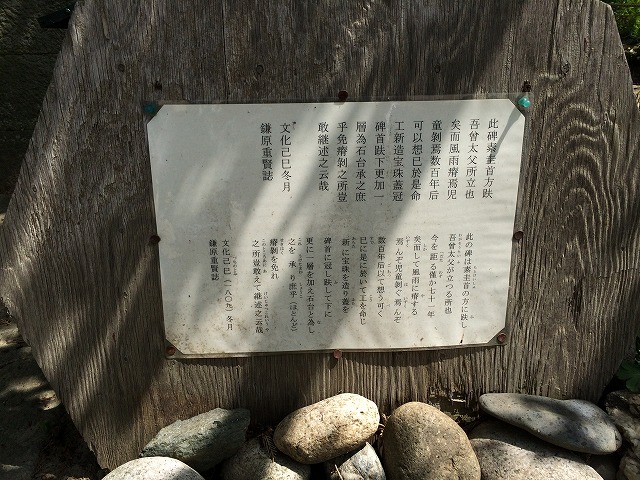 此碑素圭首方趺
吾曾太父所立也
矣而風雨瘠焉児
童剝焉数百年後
可以想已於是命
工新造宝珠蓋冠
碑首趺下更加一
層為石台承之庶
乎免瘠剝之所豈
敢継述之云哉
文化己巳冬月
鎌原重賢誌
此の碑は素圭首の方に趺し
吾曾太父が立つる所也
今を距る僅か七十一年
矣而して風雨に瘠する
焉んぞ児童剝ぐ焉んぞ
数百年後以て想う可く
已に是に於いて工を命じ
新に宝珠を造り蓋を
碑首に冠し趺して下に
更に一層を加え石台と為し
之を承り庶乎(ほとんど)
瘠剝を免れ
之所豈敢えて継述之云哉
文化己巳(一八〇九)冬月
鎌原重賢誌